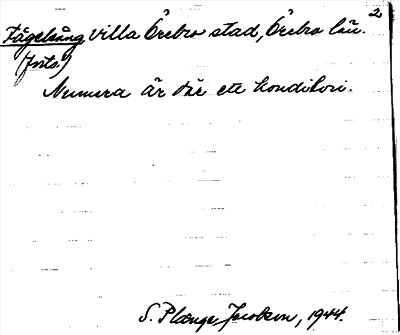 2
Fågelsång villa Örebro stad, Örebro län.
(forts.)
Numera är där ett konditori.
S. Plænge Jacobson, 1944.